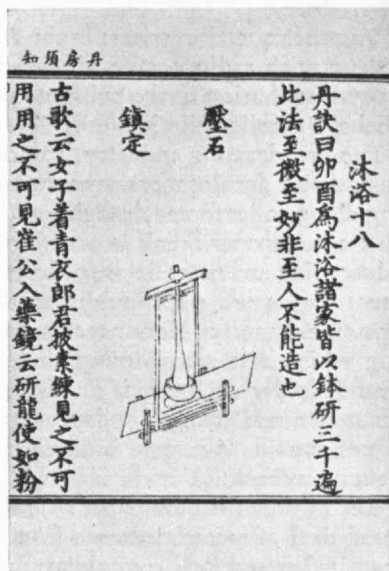 丹房須知
沐浴十八
丹訣曰卯酉為沐浴諸家皆以鉢研三千遍
此法至微至妙非至人不能造也
壓石
鎮定
古歌云女子着青衣郎君披素練見之不可
用用之不可見崔公入藥鏡云研龍使如粉